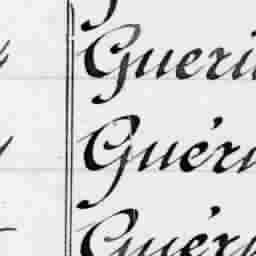 Gueri
Guéri
Guéri